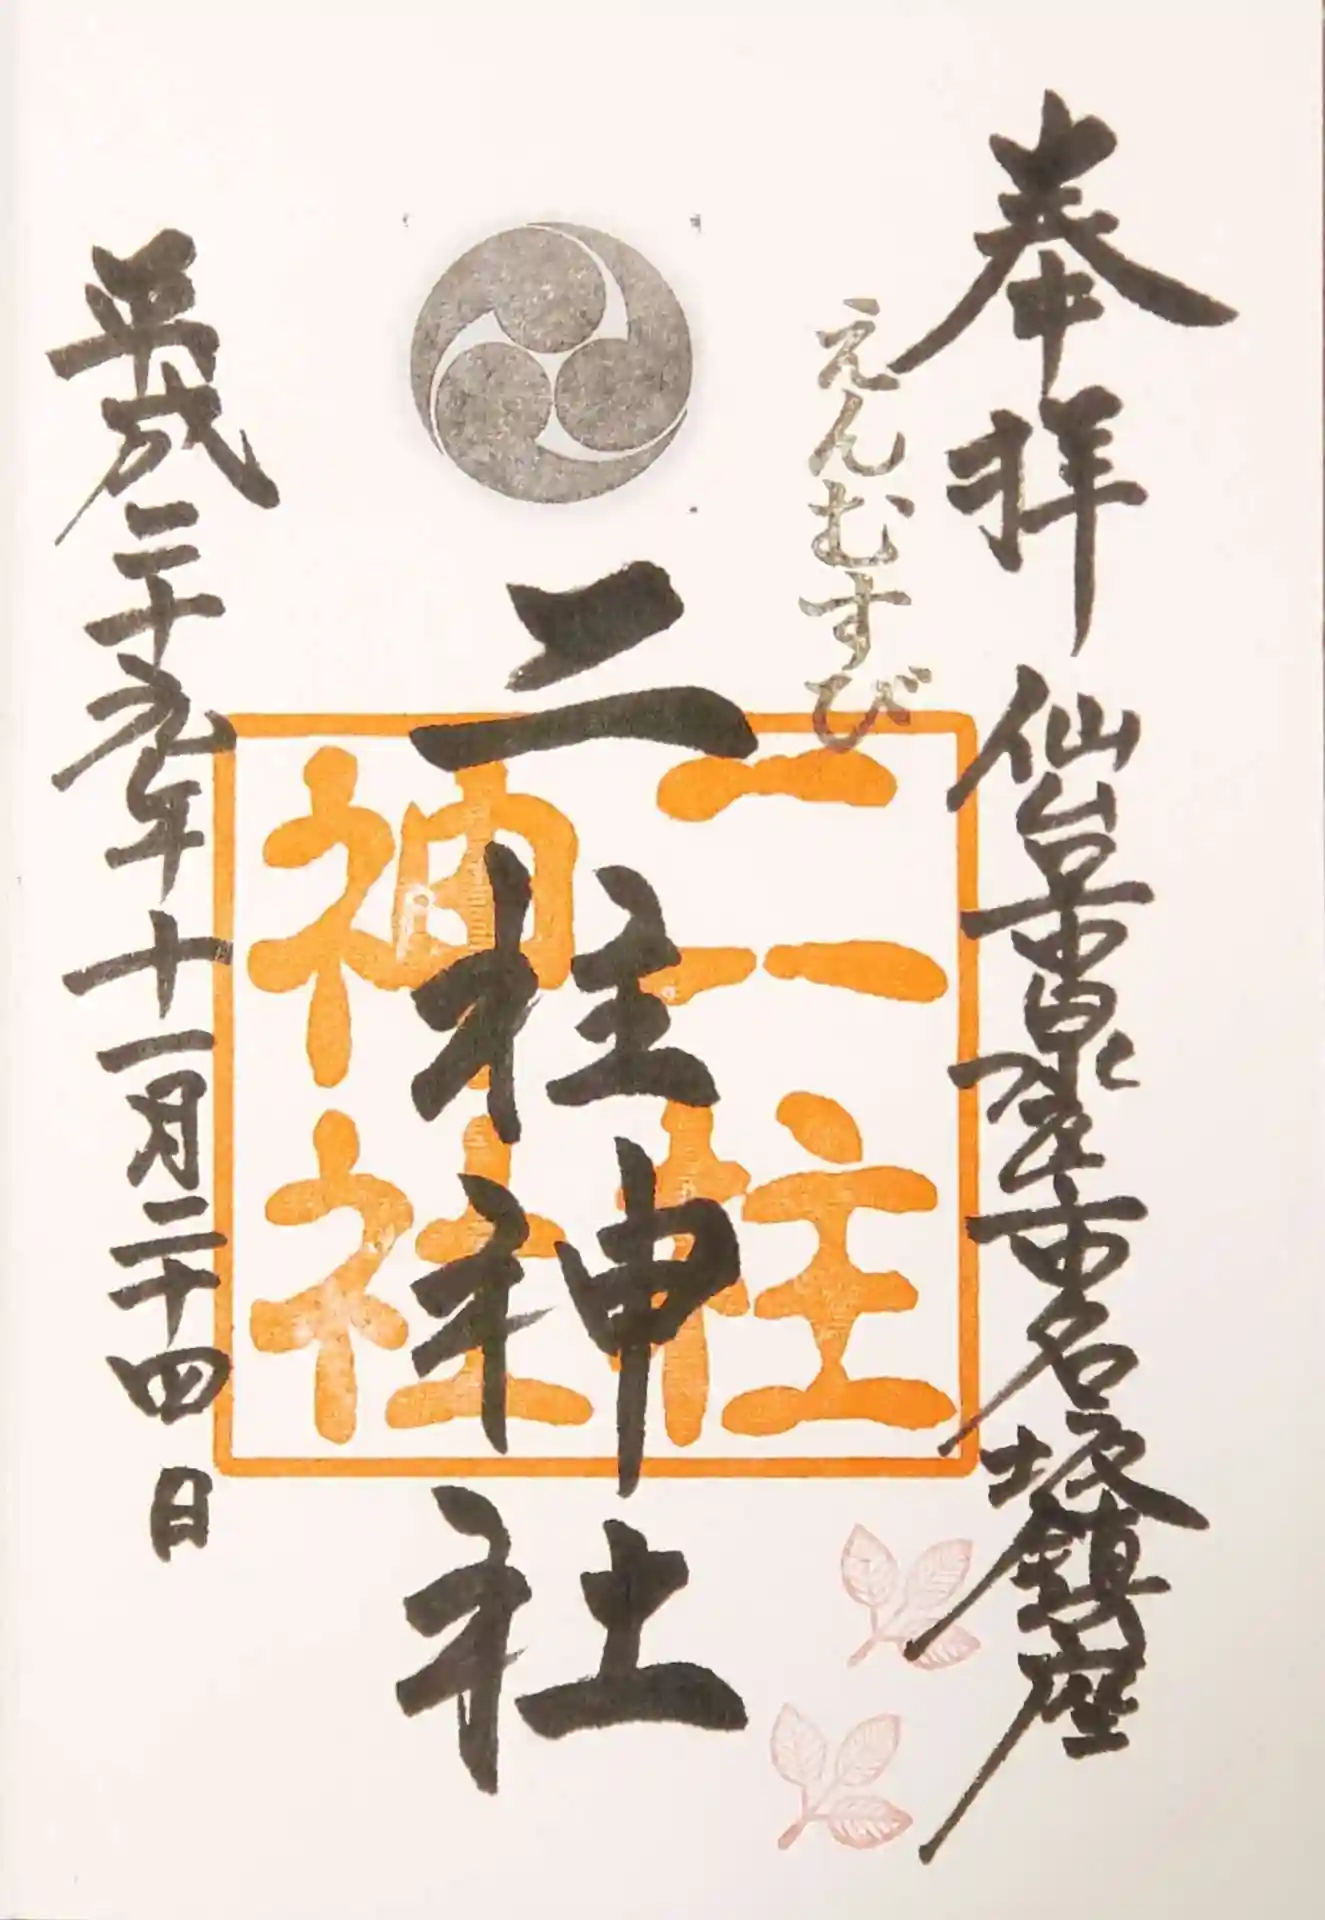 奉拝 仙台泉市名坂鎮座
えんむすび
二柱神社
二柱
神社
平成二十九年十一月二十四日